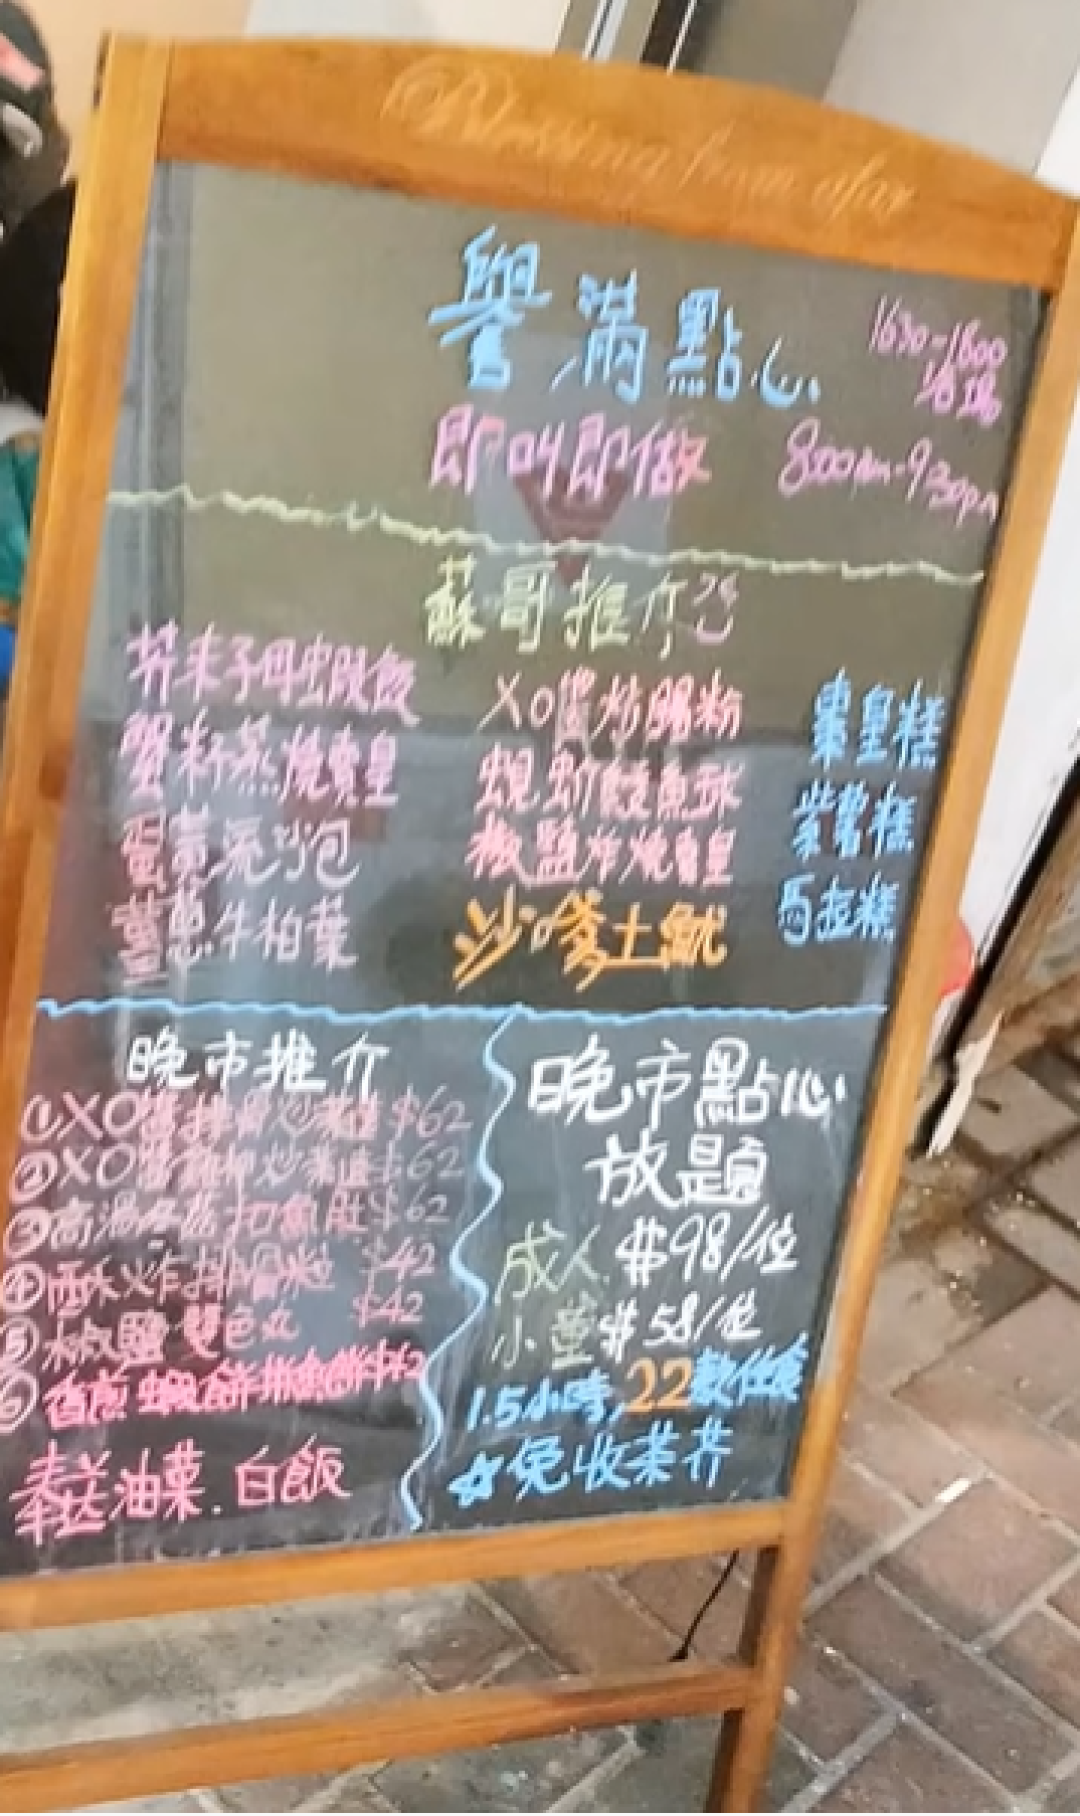 Blessing from afar
譽滿點心
1630-1800
落場
即叫即做 8:00am-9:30pm
蘇哥推介
芥末子母蝦餃 XO醬炒腸粉 棗皇糕
蟹粉蒸燒賣皇 蜆蚧鯪魚球 紫薯糕
蛋黃流沙包 椒鹽炸燒賣皇 馬拉糕
薑蔥牛柏葉 沙爹土魷
晚市推介
①XO醬排骨炒 $62
②XO醬 炒 $62
③高湯 魚肚 $62
④ 炸排骨粒 $42
⑤椒鹽雙色丸 $42
⑥香煎蝦餅 $42
奉送油菜.白飯
晚市點心
放題
成人 $98/位
小童 $58/位
1.5小時,22款任食
☆免收茶芥